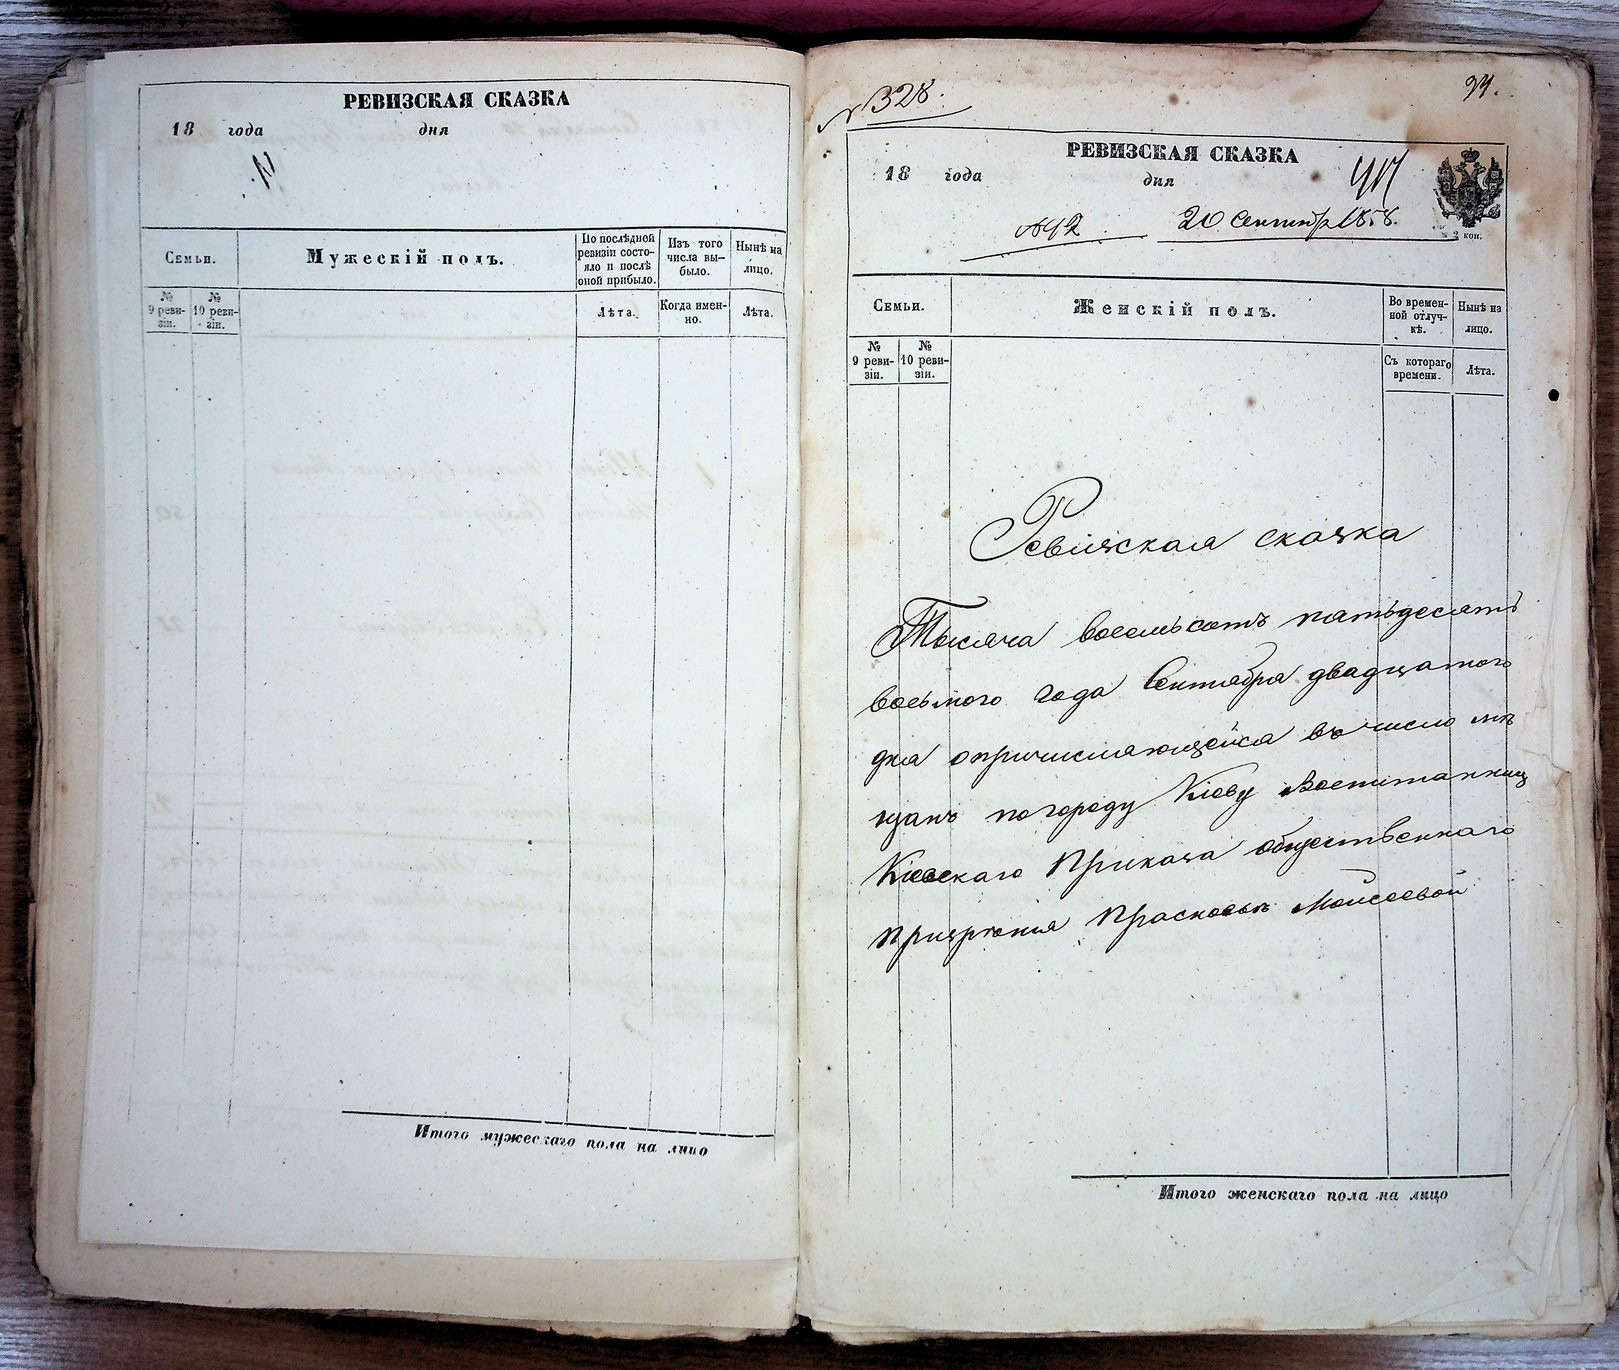 РЕВИЗСКАЯ СКАЗКА
18 года дня
Семьи.
Мужескій полъ.
По послѣдней ревизіи состояло и послѣ оной прибыло.
Изъ того числа выбыло.
Нынѣ на лицо.
№ 9 ревизіи.
№ 10 ревизіи.
Лѣта.
Когда именно.
Лѣта.
Итого мужескаго пола на лицо
№328.
РЕВИЗСКАЯ СКАЗКА
18 года дня
20 Сентябр 1858.
2 коп.
Семьи.
Женскій полъ.
Во временной отлучкѣ.
Нынѣ на лицо.
№ 9 ревизіи.
№ 10 ревизіи.
Съ котораго времени.
Лѣта.
Ревизская сказка
Тысяча восемьсотъ пятьдесятъ
восьмого года Сентября двадцатого
дня опричисляющейся въ число мѣ
щанъ по городу Кіеву Воспитанниц
Кіевскаго Приказа общественнаго
призрѣнія Прасковьѣ Моисеевой
Итого женскаго пола на лицо